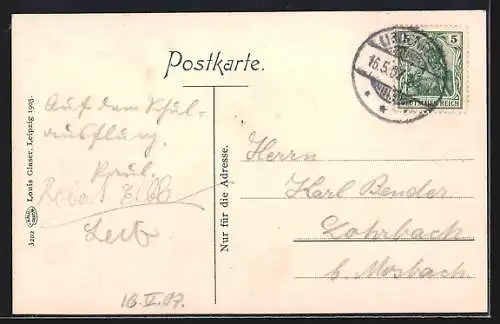 Postkarte.
16.5.07
5
DEUTSCHES REICH
Auf dem Schul-
ausflug.
Paul.
16.V.07.
3202
Louis Glaser, Leipzig 1905.
Nur für die Adresse.
Herrn
Karl Bender
Lohrbach
b. Mosbach